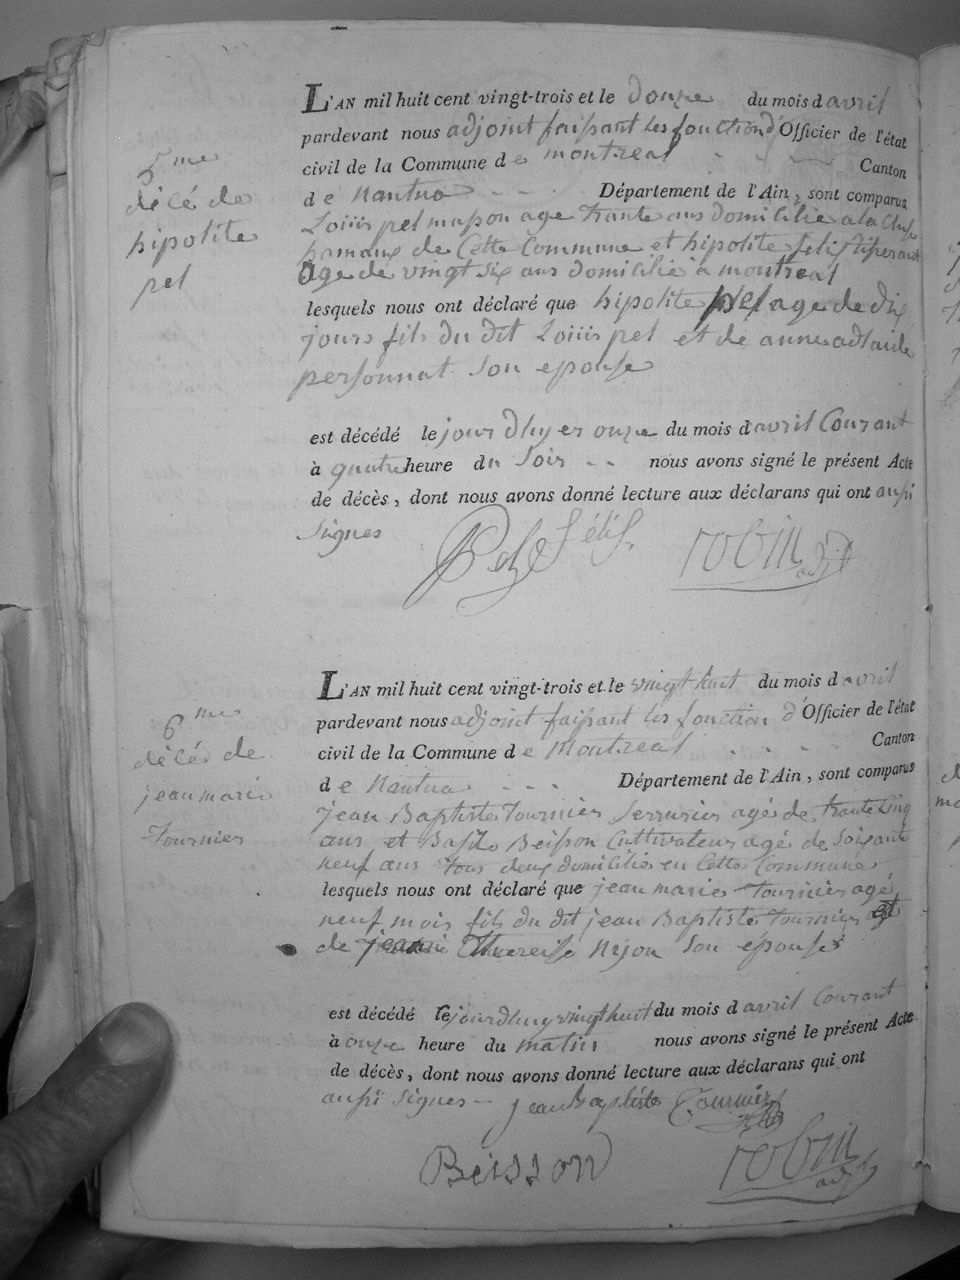 5me
décé de
hipolite
pel
L'AN mil huit cent vingt-trois et le douze du mois d avril
pardevant nous adjoint faisant les fonction d'Officier de l'état
civil de la Commune de montreal Canton
de Nantua Département de l'Ain, sont comparus
pel masson age trante ans domicilié a la Cluse
hamaux de Cette Commune et hipolite felis
age de vingt six ans domicilié a montreal
lesquels nous ont déclaré que hipolite pel age de dix
jours fils du dit pel et de anne adlaide
personnat son epouse
est décédé le jour dhyer onze du mois d avril Courant
à quatre heure du soir nous avons signé le présent Acte
de décès, dont nous avons donné lecture aux déclarans qui ont aussi
signes
Pel félis robin adjt
6me
décés de
jean marie
Tournier
L'AN mil huit cent vingt-trois et le vingt huit du mois d avril
pardevant nous adjoint faisant les fonction d'Officier de l'état
civil de la Commune de Montreal Canton
de Nantua Département de l'Ain, sont comparus
jean Baptiste Tournier serrurier agé de trante cinq
ans et Basile Beisson Cultivateur agé de soisante
neuf ans tous deux domicilies en Cette Commune
lesquels nous ont déclaré que jean marie Tournier agé
neuf mois fils du dit jean Baptiste Tournier et
de jeanne Thereise Nijon son épouse
est décédé le jourdhuy vingt huit du mois d avril Courant
à onze heure du matin nous avons signé le présent Acte
de décès, dont nous avons donné lecture aux déclarans qui ont
aussi signes jean Baptiste Tournier
Beisson robin adjt